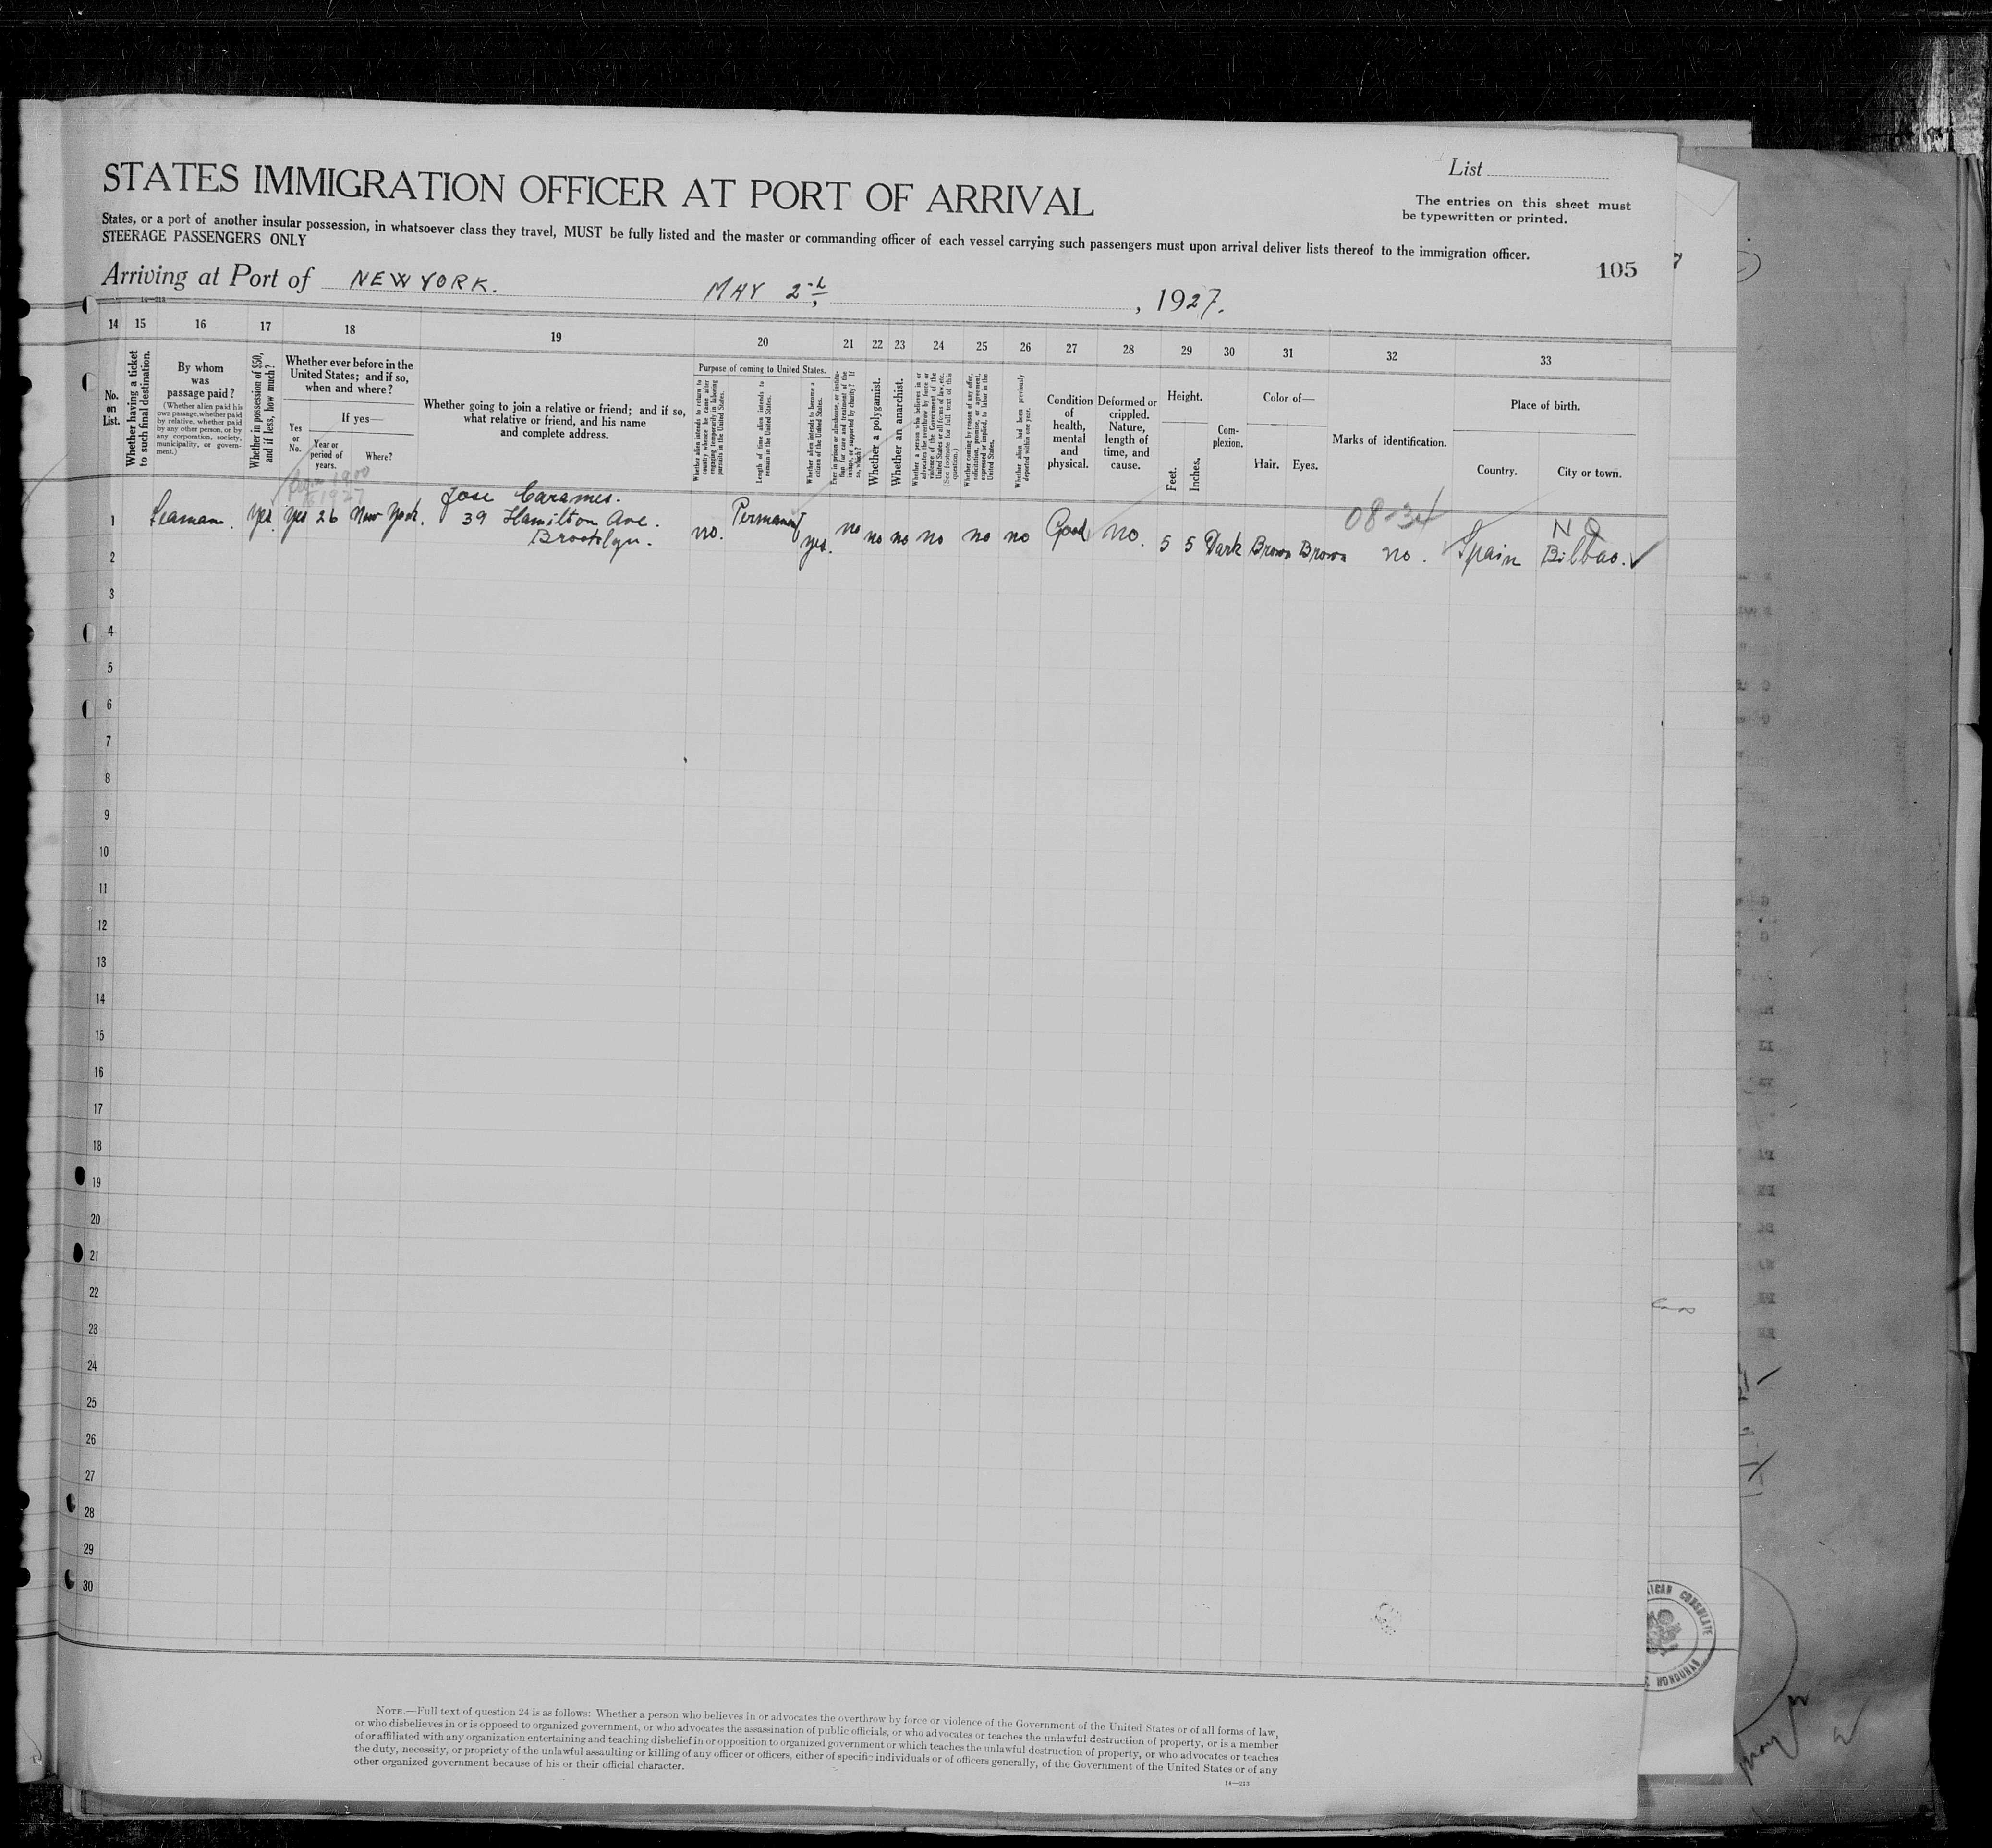 List
STATES IMMIGRATION OFFICER AT PORT OF ARRIVAL
The entries on this sheet must
be typewritten or printed.
States, or a port of another insular possession, in whatsoever class they travel, MUST be fully listed and the master or commanding officer of each vessel carrying such passengers must upon arrival deliver lists thereof to the immigration officer.
STEERAGE PASSENGERS ONLY
105
Arriving at Port of NEW YORK. MAY 2 , 1927.
14—213
14 15 16 17 18 19 20 21 22 23 24 25 26 27 28 29 30 31 32 33
No.
on
List.
Whether having a ticket
to such final destination.
By whom
was
passage paid?
(Whether alien paid his
own passage, whether paid
by relative, whether paid
by any other person, or by
any corporation, society,
municipality, or govern-
ment.)
Whether in possession of $50,
and if less, how much?
Whether ever before in the
United States; and if so,
when and where?
If yes—
Yes
or
No.
Year or
period of
years.
Where?
Whether going to join a relative or friend; and if so,
what relative or friend, and his name
and complete address.
Purpose of coming to United States.
Whether alien intends to return to
country whence he came after
engaging temporarily in laboring
pursuits in the United States.
Length of time alien intends to
remain in the United States.
Whether alien intends to become a
citizen of the United States.
Ever in prison or almshouse, or institu-
tion for care and treatment of the
insane, or supported by charity? If
so, which?
Whether a polygamist.
Whether an anarchist.
Whether a person who believes in or
advocates the overthrow by force or
violence of the Government of the
United States or all forms of law, etc.
(See footnote for full text of this
question.)
Whether coming by reason of any offer,
solicitation, promise, or agreement,
expressed or implied, to labor in the
United States.
Whether alien had been previously
deported within one year.
Condition
of
health,
mental
and
physical.
Deformed or
crippled.
Nature,
length of
time, and
cause.
Height.
Feet.
Inches.
Com-
plexion.
Color of—
Hair. Eyes.
Marks of identification.
Place of birth.
Country. City or town.
1900
1927
Jose Carames.
08-34
NQ
1 Seaman. Yes. yes 26 New York. 39 Hamilton Ave. no. Permanent yes. no no no no no no Good no. 5 5 Dark Brown Brown no. Spain Bilbao.
Brooklyn.
2
3
4
5
6
7
8
9
10
11
12
13
14
15
16
17
18
19
20
21
22
23
24
25
26
27
28
29
30
NOTE.—Full text of question 24 is as follows: Whether a person who believes in or advocates the overthrow by force or violence of the Government of the United States or of all forms of law,
or who disbelieves in or is opposed to organized government, or who advocates the assassination of public officials, or who advocates or teaches the unlawful destruction of property, or is a member
of or affiliated with any organization entertaining and teaching disbelief in or opposition to organized government or which teaches the unlawful destruction of property, or who advocates or teaches
the duty, necessity, or propriety of the unlawful assaulting or killing of any officer or officers, either of specific individuals or of officers generally, of the Government of the United States or of any
other organized government because of his or their official character.
14—213
ICAN CONSULATE